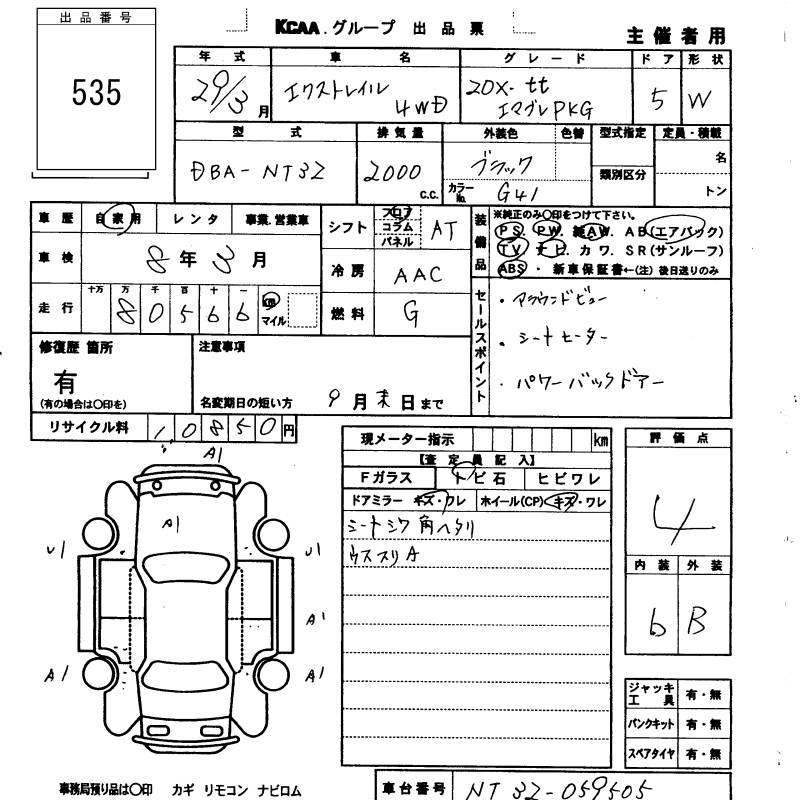 出品番号
535
KCAA.グループ 出品票
主催者用
年式 車名 グレード ドア 形状
29/3月 エクストレイル 4WD 20X-tt エマブレPKG 5 W
型式 排気量 外装色 色替 型式指定 定員・積載
DBA-NT32 2000 c.c. ブラック 類別区分 名
カラーNo. G41 トン
車歴 自家用 レンタ 事業.営業車
シフト フロア コラム パネル AT
装備品 ※純正のみ〇印をつけて下さい。
PS. PW. 純AW. AB(エアバック)
TV ナビ. カワ. SR(サンルーフ)
ABS・新車保証書←(注)後日送りのみ
車検 8年3月
冷房 AAC
走行 十万 万 千 百 十 一
80566 km マイル
燃料 G
セールスポイント
・アラウンドビュー
・シートヒーター
・パワーバックドアー
修復歴 箇所 注意事項
有
(有の場合は〇印を) 名変期日の短い方 9月末日まで
リサイクル料 10850円
現メーター指示 km
【査定員記入】
Fガラス トビ石 ヒビワレ
ドアミラー キズ・ワレ ホイール(CP) キズ・ワレ
シートシワ 角ヘタリ
ウススリA
評価点
4
内装 外装
b B
A1
A1
U1 U1
A1
A1 A1
ジャッキ工具 有・無
パンクキット 有・無
スペアタイヤ 有・無
事務局預り品は〇印 カギ リモコン ナビロム
車台番号 NT32-059505